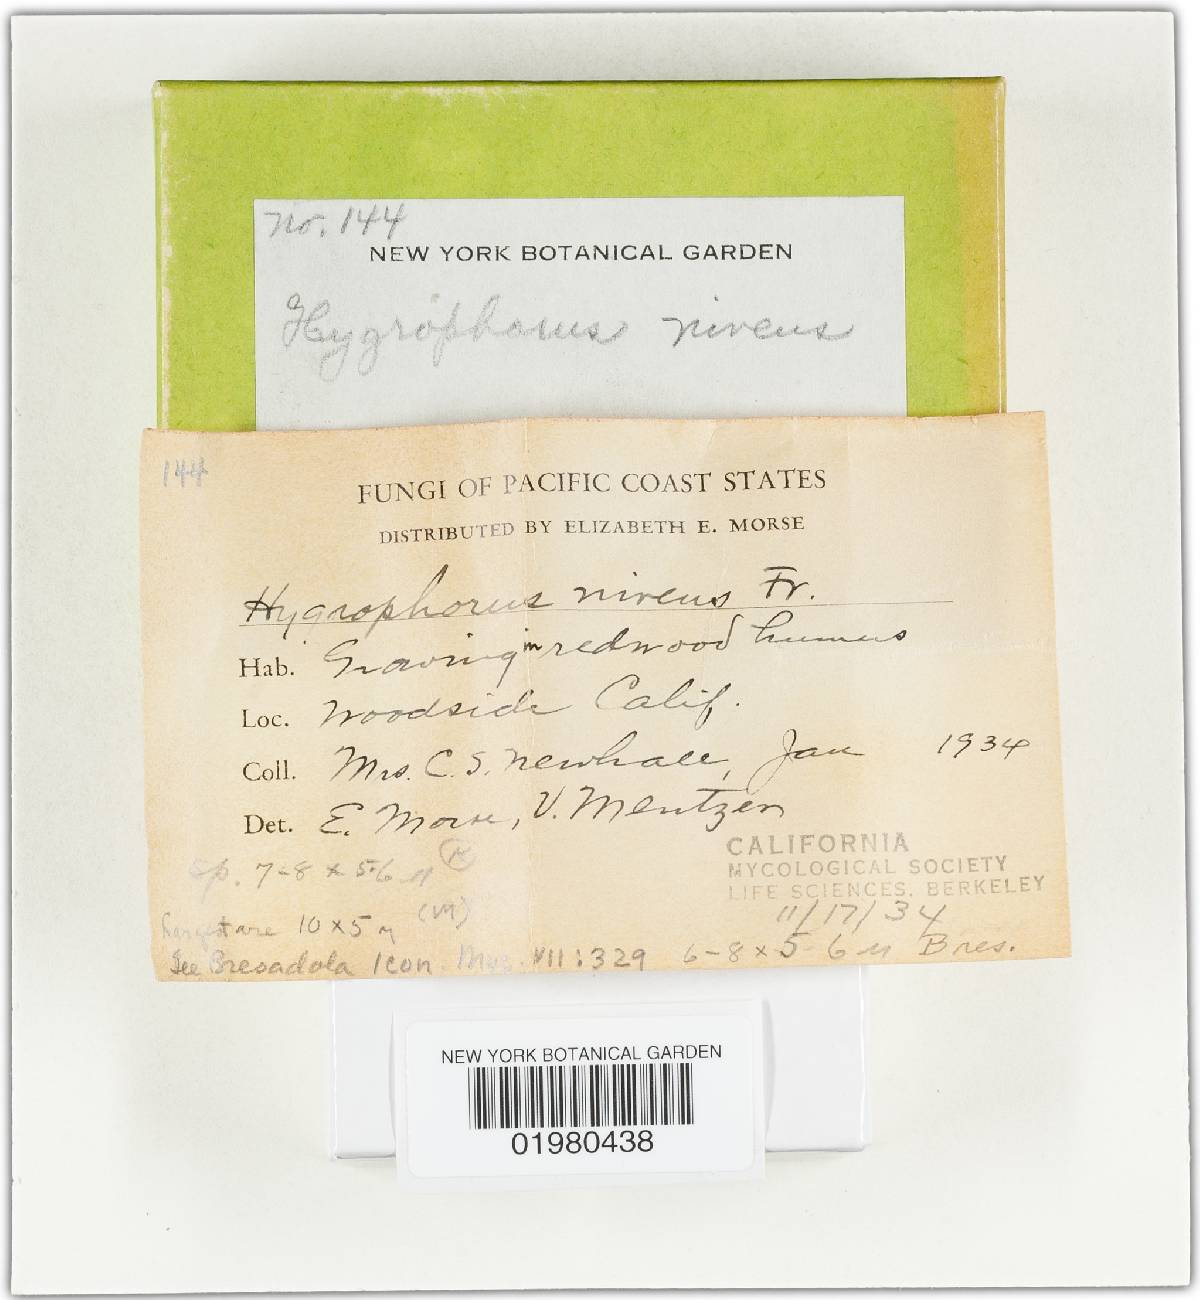 No. 144
NEW YORK BOTANICAL GARDEN
Hygrophorus niveus
144
FUNGI OF PACIFIC COAST STATES
DISTRIBUTED BY ELIZABETH E. MORSE
Hygrophorus niveus Fr.
Hab. Growing in redwood humus
Loc. Woodside Calif.
Coll. Mrs. C. S. Newhall, Jan 1934
Det. E. Morse, V. Mentzer
Sp. 7-8 x 5-6 µ
CALIFORNIA
MYCOLOGICAL SOCIETY
LIFE SCIENCES, BERKELEY
11/17/34
largest are 10 x 5 µ (M)
See Bresadola Icon. Myc. VII: 329 6-8 x 5-6 µ Bres.
NEW YORK BOTANICAL GARDEN
01980438